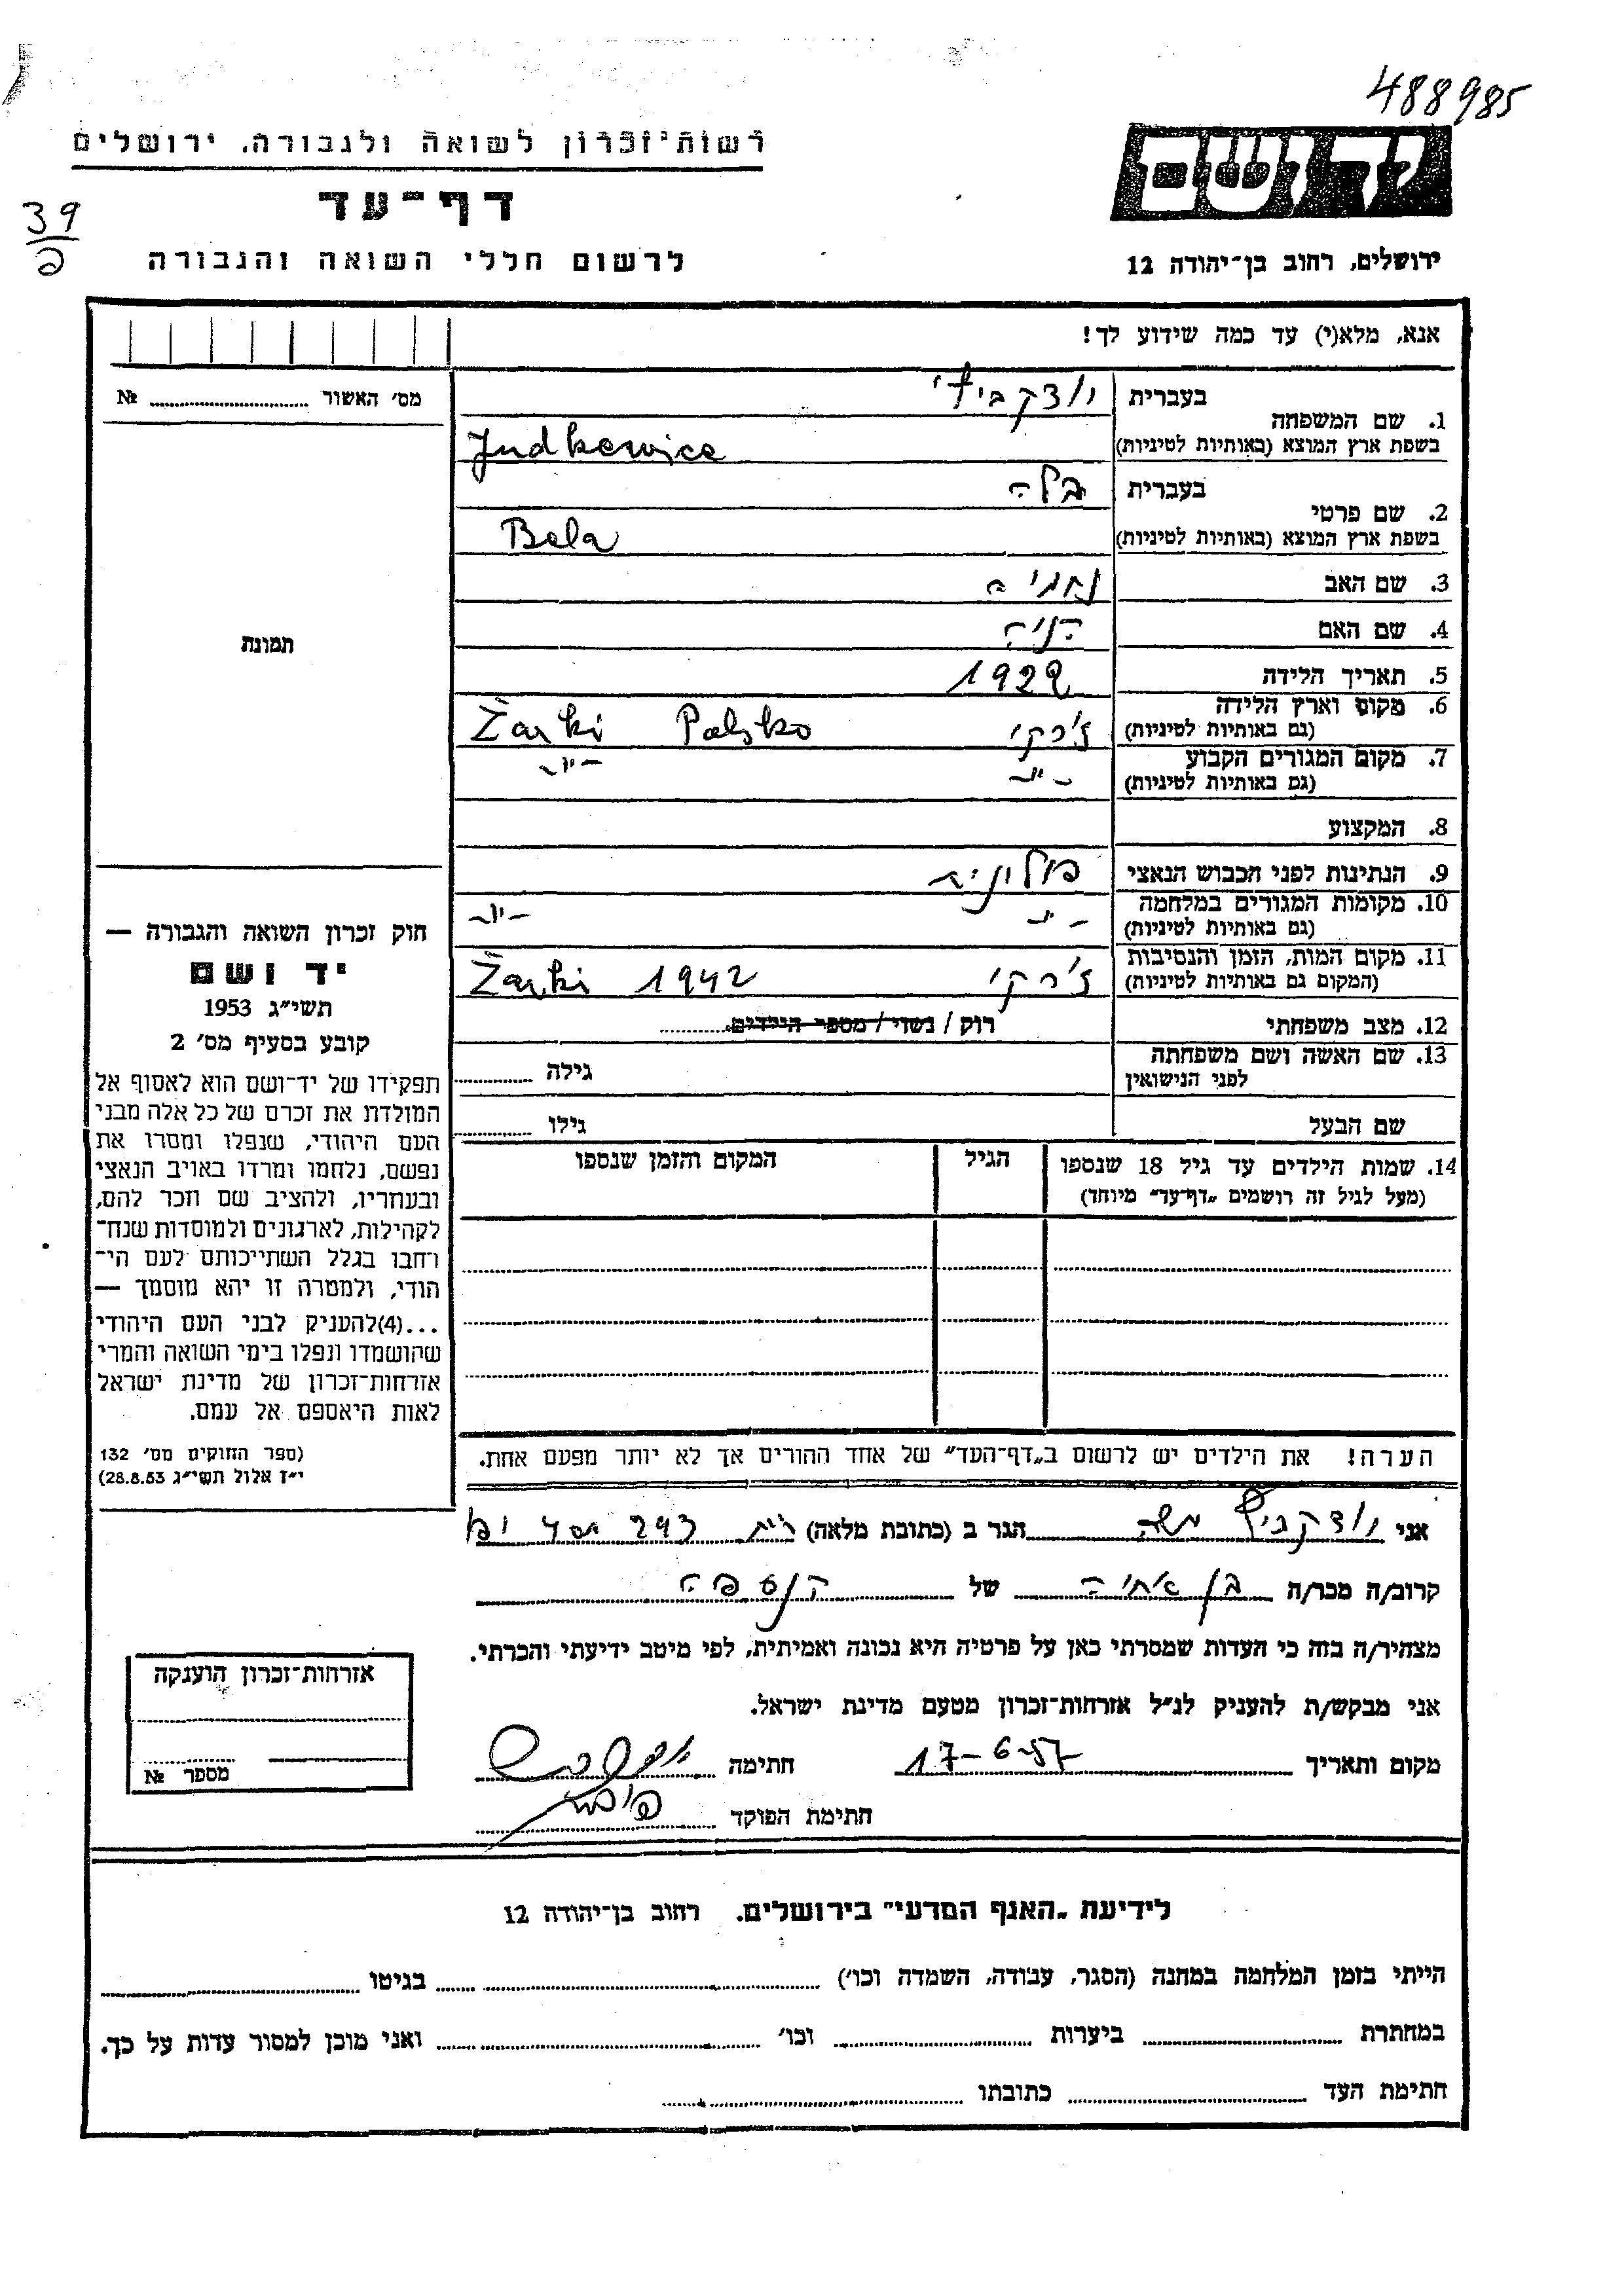 488985
רשות־זכרון לשואה ולגבורה, ירושלים
דף־עד
39
פ
לרשום חללי השואה והגבורה
יד ושם
ירושלים, רחוב בן־יהודה 12
אנא, מלא(י) עד כמה שידוע לך!
מס׳ האשור № 
1. שם המשפחה
בעברית יודקביץ'
בשפת ארץ המוצא (באותיות לטיניות) Judkewice
2. שם פרטי
בעברית בלה
בשפת ארץ המוצא (באותיות לטיניות) Bela
3. שם האב נחמיה
4. שם האם
5. תאריך הלידה 1922
6. מקום וארץ הלידה ז'רקי Żarki Polsko
(גם באותיות לטיניות)
7. מקום המגורים הקבוע -"- -"-
(גם באותיות לטיניות)
8. המקצוע
9. הנתינות לפני הכבוש הנאצי פולניה
10. מקומות המגורים במלחמה -"- -"-
(גם באותיות לטיניות)
11. מקום המות, הזמן והנסיבות ז'רקי Żarki 1942
(המקום גם באותיות לטיניות)
12. מצב משפחתי רוק / נשוי / מספר הילדים
13. שם האשה ושם משפחתה גילה
לפני הנישואין
שם הבעל גילו
14. שמות הילדים עד גיל 18 שנספו הגיל המקום והזמן שנספו
(מעל לגיל זה רושמים „דף־עד״ מיוחד)
הערה! את הילדים יש לרשום ב„דף־העד״ של אחד ההורים אך לא יותר מפעם אחת.
תמונה
חוק זכרון השואה והגבורה —
יד ושם
תשי״ג 1953
קובע בסעיף מס׳ 2
תפקידו של יד־ושם הוא לאסוף אל
המולדת את זכרם של כל אלה מבני
העם היהודי, שנפלו ומסרו את
נפשם, נלחמו ומרדו באויב הנאצי
ובעוזריו, ולהציב שם וזכר להם,
לקהילות, לארגונים ולמוסדות שנח־
רחבו בגלל השתייכותם לעם הי־
הודי, ולמטרה זו יהא מוסמך —
...(4)להעניק לבני העם היהודי
שהושמדו ונפלו בימי השואה והמרי
אזרחות־זכרון של מדינת ישראל
לאות היאספם אל עמם.
(ספר החוקים מס׳ 132
י״ז אלול תשי״ג 28.8.53)
אני יודקביץ משה הגר ב (כתובת מלאה) 293
קרוב/ה מכר/ה בן אחיה של הנספה
מצהיר/ה בזה כי העדות שמסרתי כאן על פרטיה היא נכונה ואמיתית, לפי מיטב ידיעתי והכרתי.
אני מבקש/ת להעניק לנ״ל אזרחות־זכרון מטעם מדינת ישראל.
מקום ותאריך 17-6-57 חתימה
חתימת הפוקד
אזרחות־זכרון הוענקה
מספר №
לידיעת „האגף המדעי״ בירושלים. רחוב בן־יהודה 12
הייתי בזמן המלחמה במחנה (הסגר, עבודה, השמדה וכו׳) בגיטו
במחתרת ביערות וכו׳ ואני מוכן למסור עדות על כך.
חתימת העד כתובתו